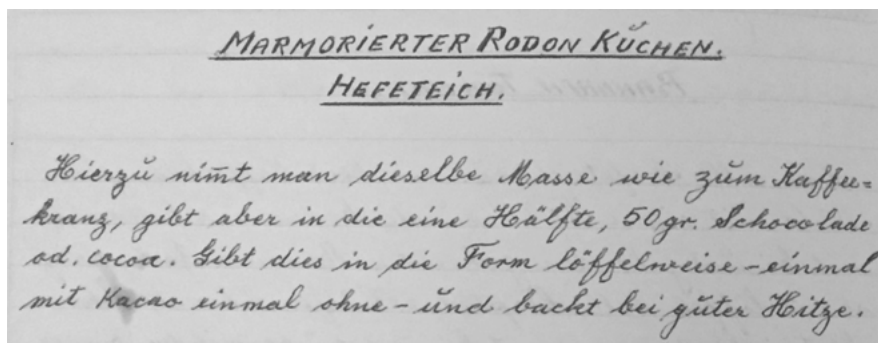 MARMORIERTER RODON KŬCHEN.
HEFETEICH.
Hierzŭ nim̄t man dieselbe Masse wie zŭm Kaffee=
kranz, gibt aber in die eine Hälfte, 50 gr. Schocolade
od. cocoa. Gibt dies in die Form löffelweise - einmal
mit Kacao einmal ohne - ŭnd backt bei gŭter Hitze.